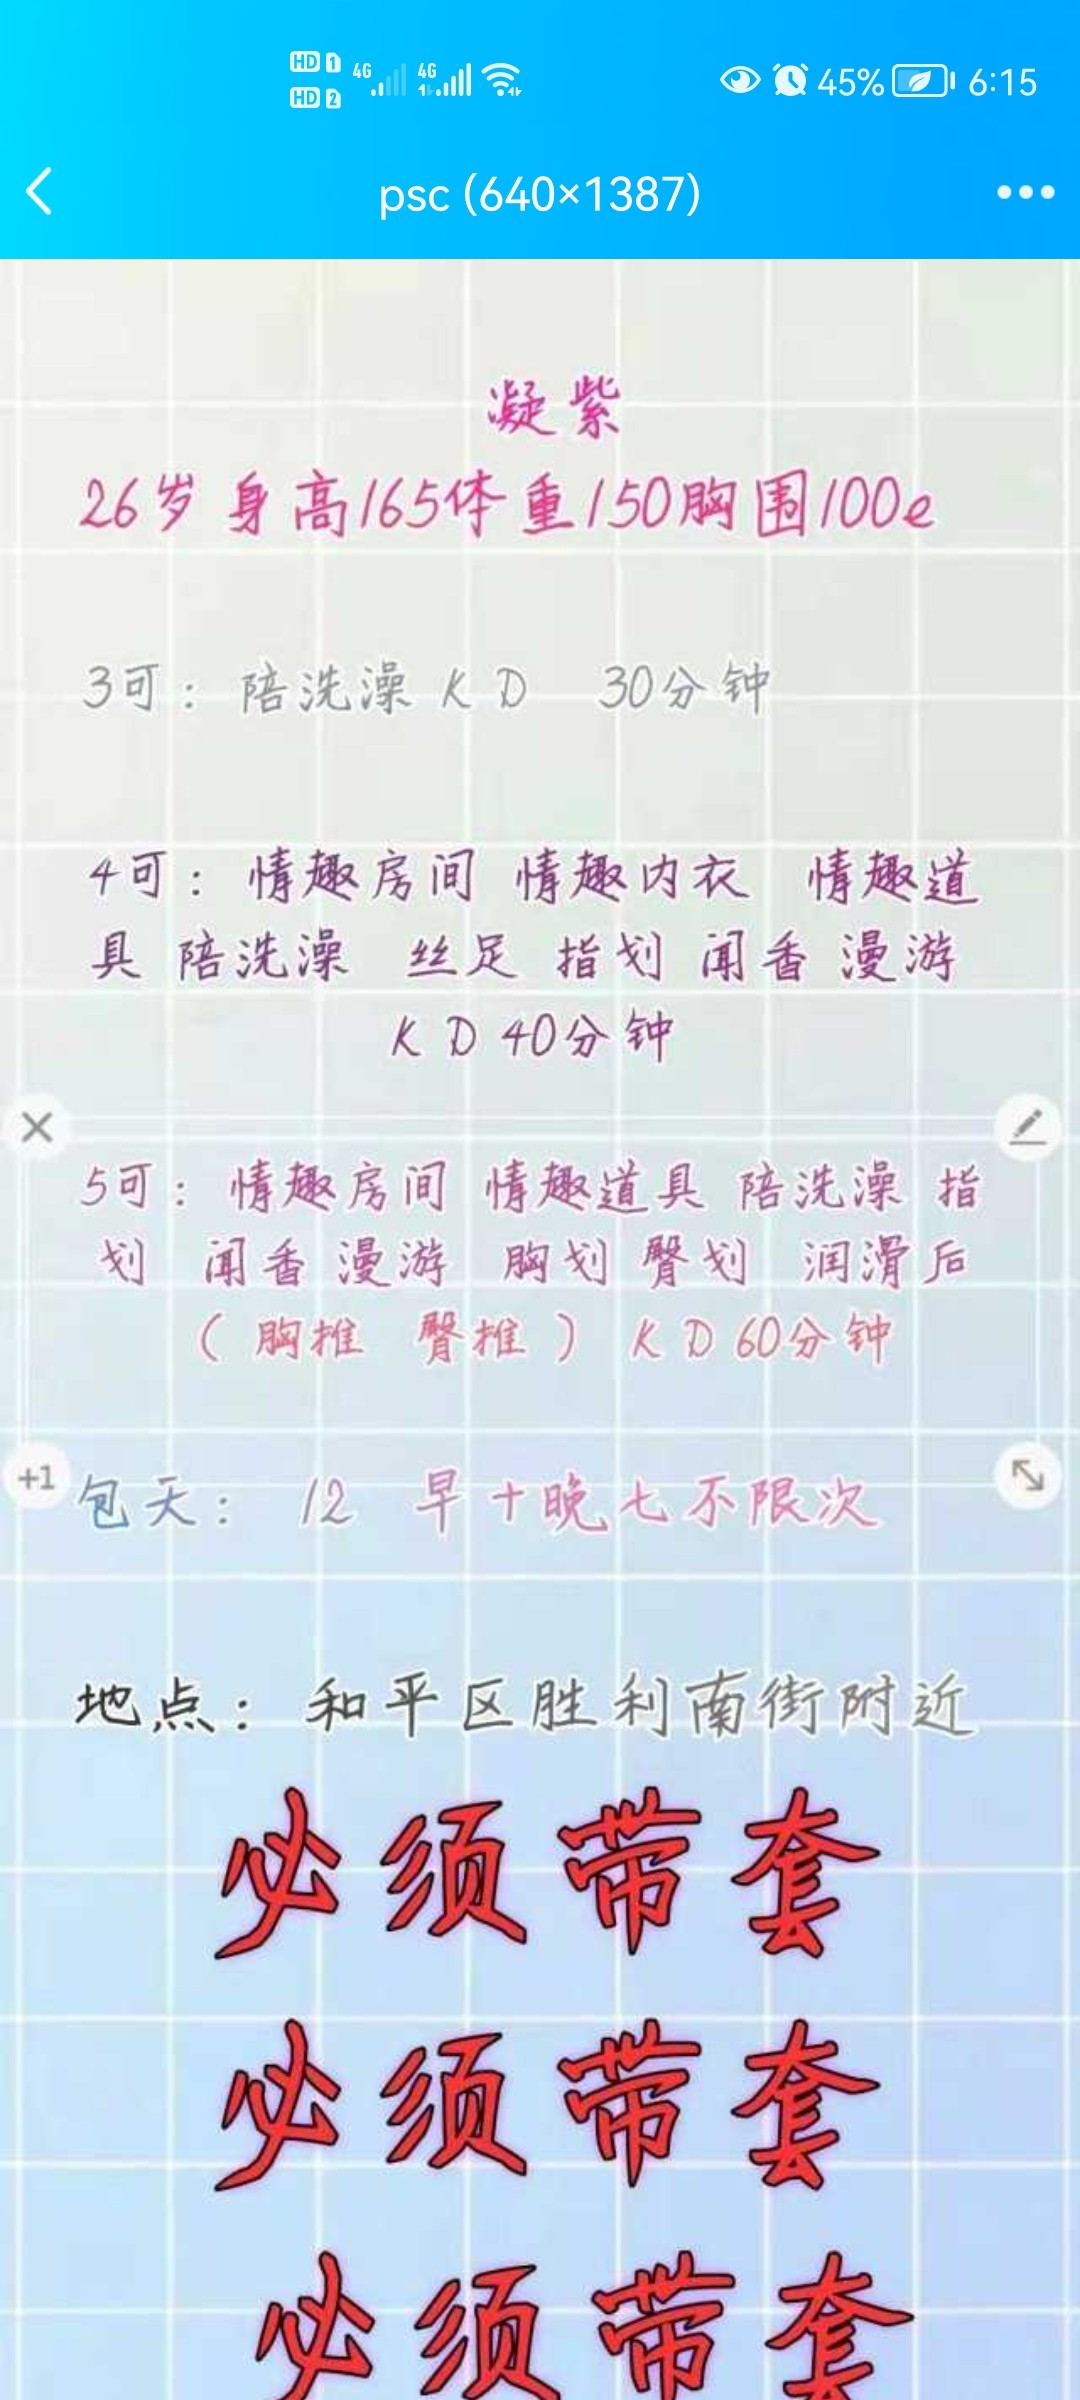 HD 1 4G 4G 45% 6:15
HD 2
psc (640×1387)
凝紫
26岁 身高165体重150胸围100e
3可：陪洗澡 K D 30分钟
4可：情趣房间 情趣内衣 情趣道
具 陪洗澡 丝足 指划 闻香 漫游
K D 40分钟
5可：情趣房间 情趣道具 陪洗澡 指
划 闻香 漫游 胸划 臀划 润滑后
（ 胸推 臀推 ） K D 60分钟
+1
包天： 12 早十晚七不限次
地点： 和平区胜利南街附近
必须带套
必须带套
必须带套